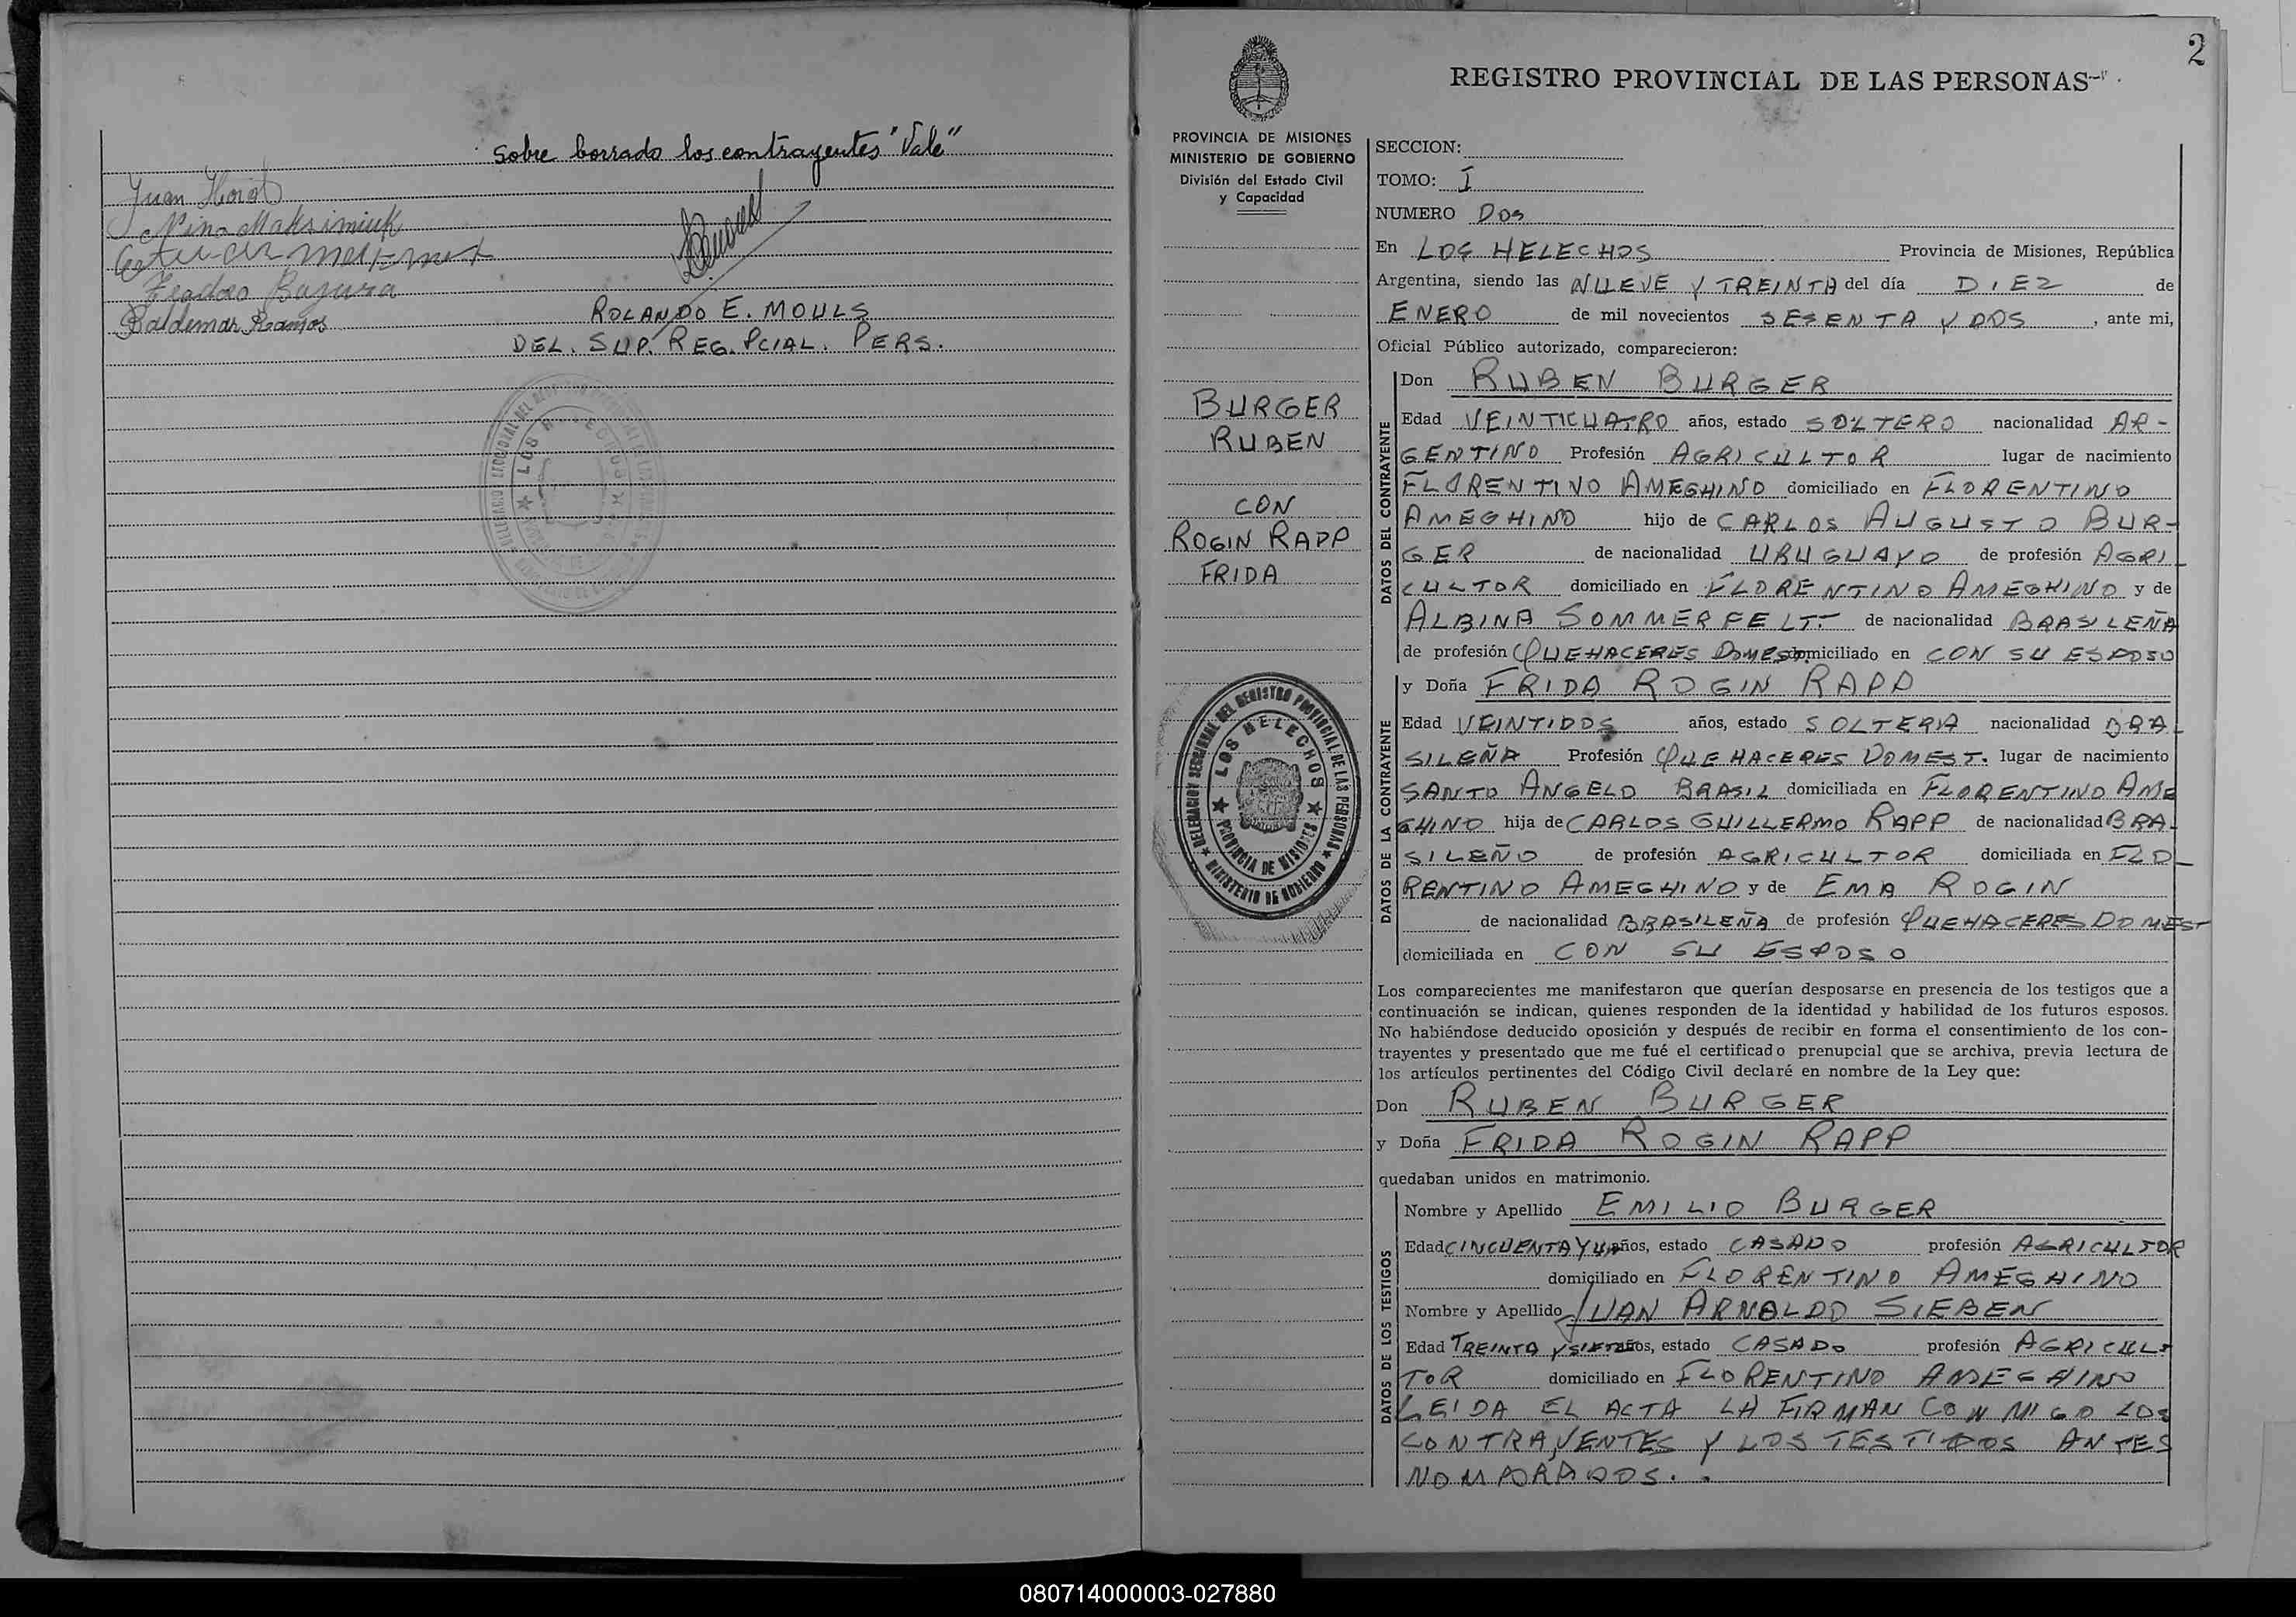 Sobre borrado los contrayentes "Vale"
Juan
Nina Maksimiuk
Baldemar Ramos
ROLANDO E. MOULS
DEL. SUP. REG. PCIAL. PERS.
2
REGISTRO PROVINCIAL DE LAS PERSONAS
PROVINCIA DE MISIONES
MINISTERIO DE GOBIERNO
División del Estado Civil
y Capacidad
BURGER
RUBEN
CON
ROGIN RAPP
FRIDA
DELEGACION SECCIONAL DEL REGISTRO PROVINCIAL DE LAS PERSONAS
MINISTERIO DE GOBIERNO
LOS HELECHOS
PROVINCIA DE MISIONES
SECCION:
TOMO: I
NUMERO DOS
En LOS HELECHOS Provincia de Misiones, República
Argentina, siendo las NUEVE Y TREINTA del día DIEZ de
ENERO de mil novecientos SESENTA Y DOS, ante mi,
Oficial Público autorizado, comparecieron:
DATOS DEL CONTRAYENTE
Don RUBEN BURGER
Edad VEINTICUATRO años, estado SOLTERO nacionalidad AR-
GENTINO Profesión AGRICULTOR lugar de nacimiento
FLORENTINO AMEGHINO domiciliado en FLORENTINO
AMEGHINO hijo de CARLOS AUGUSTO BUR-
GER de nacionalidad URUGUAYO de profesión AGRI-
CULTOR domiciliado en FLORENTINO AMEGHINO y de
ALBINA SOMMERFELT.- de nacionalidad BRASILEÑA
de profesión QUEHACERES DOMEST. domiciliado en CON SU ESPOSO
DATOS DE LA CONTRAYENTE
y Doña FRIDA ROGIN RAPP
Edad VEINTIDOS años, estado SOLTERA nacionalidad BRA-
SILEÑA Profesión QUEHACERES DOMEST. lugar de nacimiento
SANTO ANGELO BRASIL domiciliada en FLORENTINO AME
GHINO hija de CARLOS GUILLERMO RAPP de nacionalidad BRA-
SILEÑO de profesión AGRICULTOR domiciliada en FLO-
RENTINO AMEGHINO y de EMA ROGIN
de nacionalidad BRASILEÑA de profesión QUEHACERES DOMEST
domiciliada en CON SU ESPOSO
Los comparecientes me manifestaron que querían desposarse en presencia de los testigos que a
continuación se indican, quienes responden de la identidad y habilidad de los futuros esposos.
No habiéndose deducido oposición y después de recibir en forma el consentimiento de los con-
trayentes y presentado que me fué el certificado prenupcial que se archiva, previa lectura de
los artículos pertinentes del Código Civil declaré en nombre de la Ley que:
Don RUBEN BURGER
y Doña FRIDA ROGIN RAPP
quedaban unidos en matrimonio.
DATOS DE LOS TESTIGOS
Nombre y Apellido EMILIO BURGER
Edad CINCUENTA Y UN años, estado CASADO profesión AGRICULTOR
domiciliado en FLORENTINO AMEGHINO
Nombre y Apellido JUAN ARNOLDO SIEBEN
Edad TREINTA Y SIETE años, estado CASADO profesión AGRICUL-
TOR domiciliado en FLORENTINO AMEGHINO
LEIDA EL ACTA LA FIRMAN CONMIGO LOS
CONTRAYENTES Y LOS TESTIGOS ANTES
NOMBRADOS..
080714000003-027880